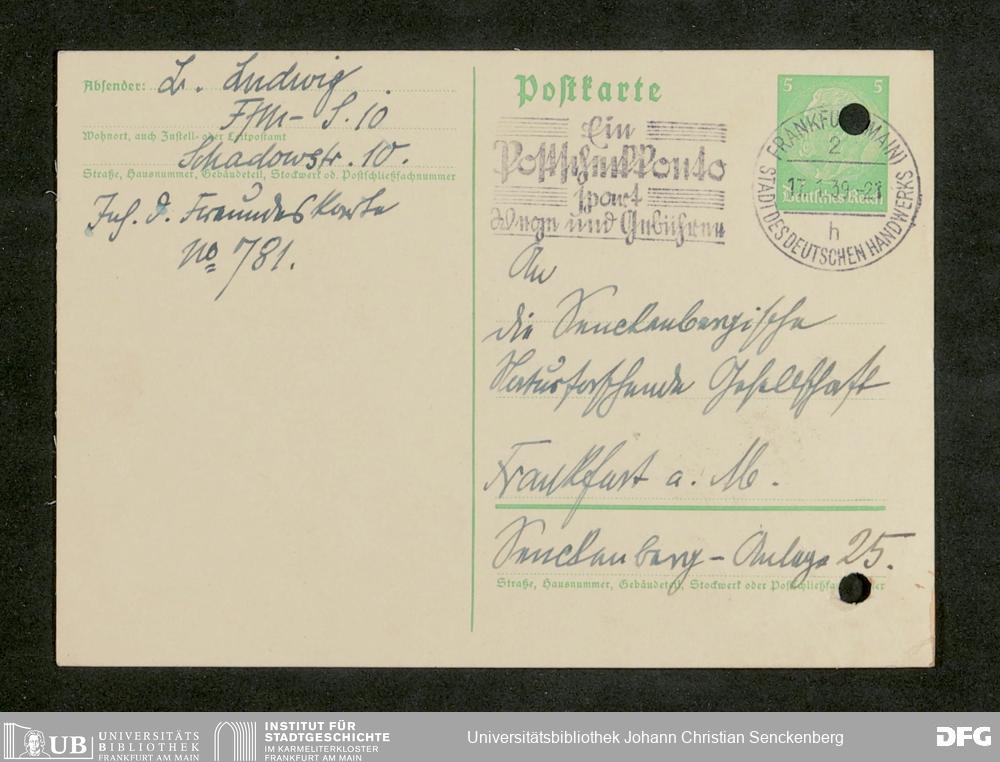 Absender: L. Ludwig
Ffm- S. 10
Wohnort, auch Zustell- oder Leitpostamt
Schadowstr. 10.
Straße, Hausnummer, Gebäudeteil, Stockwerk od. Postschließfachnummer
Inh. d. Freundeskarte
No 781.
Postkarte
5 5
Deutsches Reich
Ein
Postscheckkonto
spart
Wege und Gebühren
FRANKFURT (MAIN)
2
17. 39.-21
h
STADT DES DEUTSCHEN HANDWERKS
An
die Senckenbergische
Naturforschende Gesellschaft
Frankfurt a. M.
Senckenberg-Anlage 25.
Straße, Hausnummer, Gebäudeteil, Stockwerk oder Postschließfachnummer
UB UNIVERSITÄTS
BIBLIOTHEK
FRANKFURT AM MAIN
INSTITUT FÜR
STADTGESCHICHTE
IM KARMELITERKLOSTER
FRANKFURT AM MAIN
Universitätsbibliothek Johann Christian Senckenberg
DFG